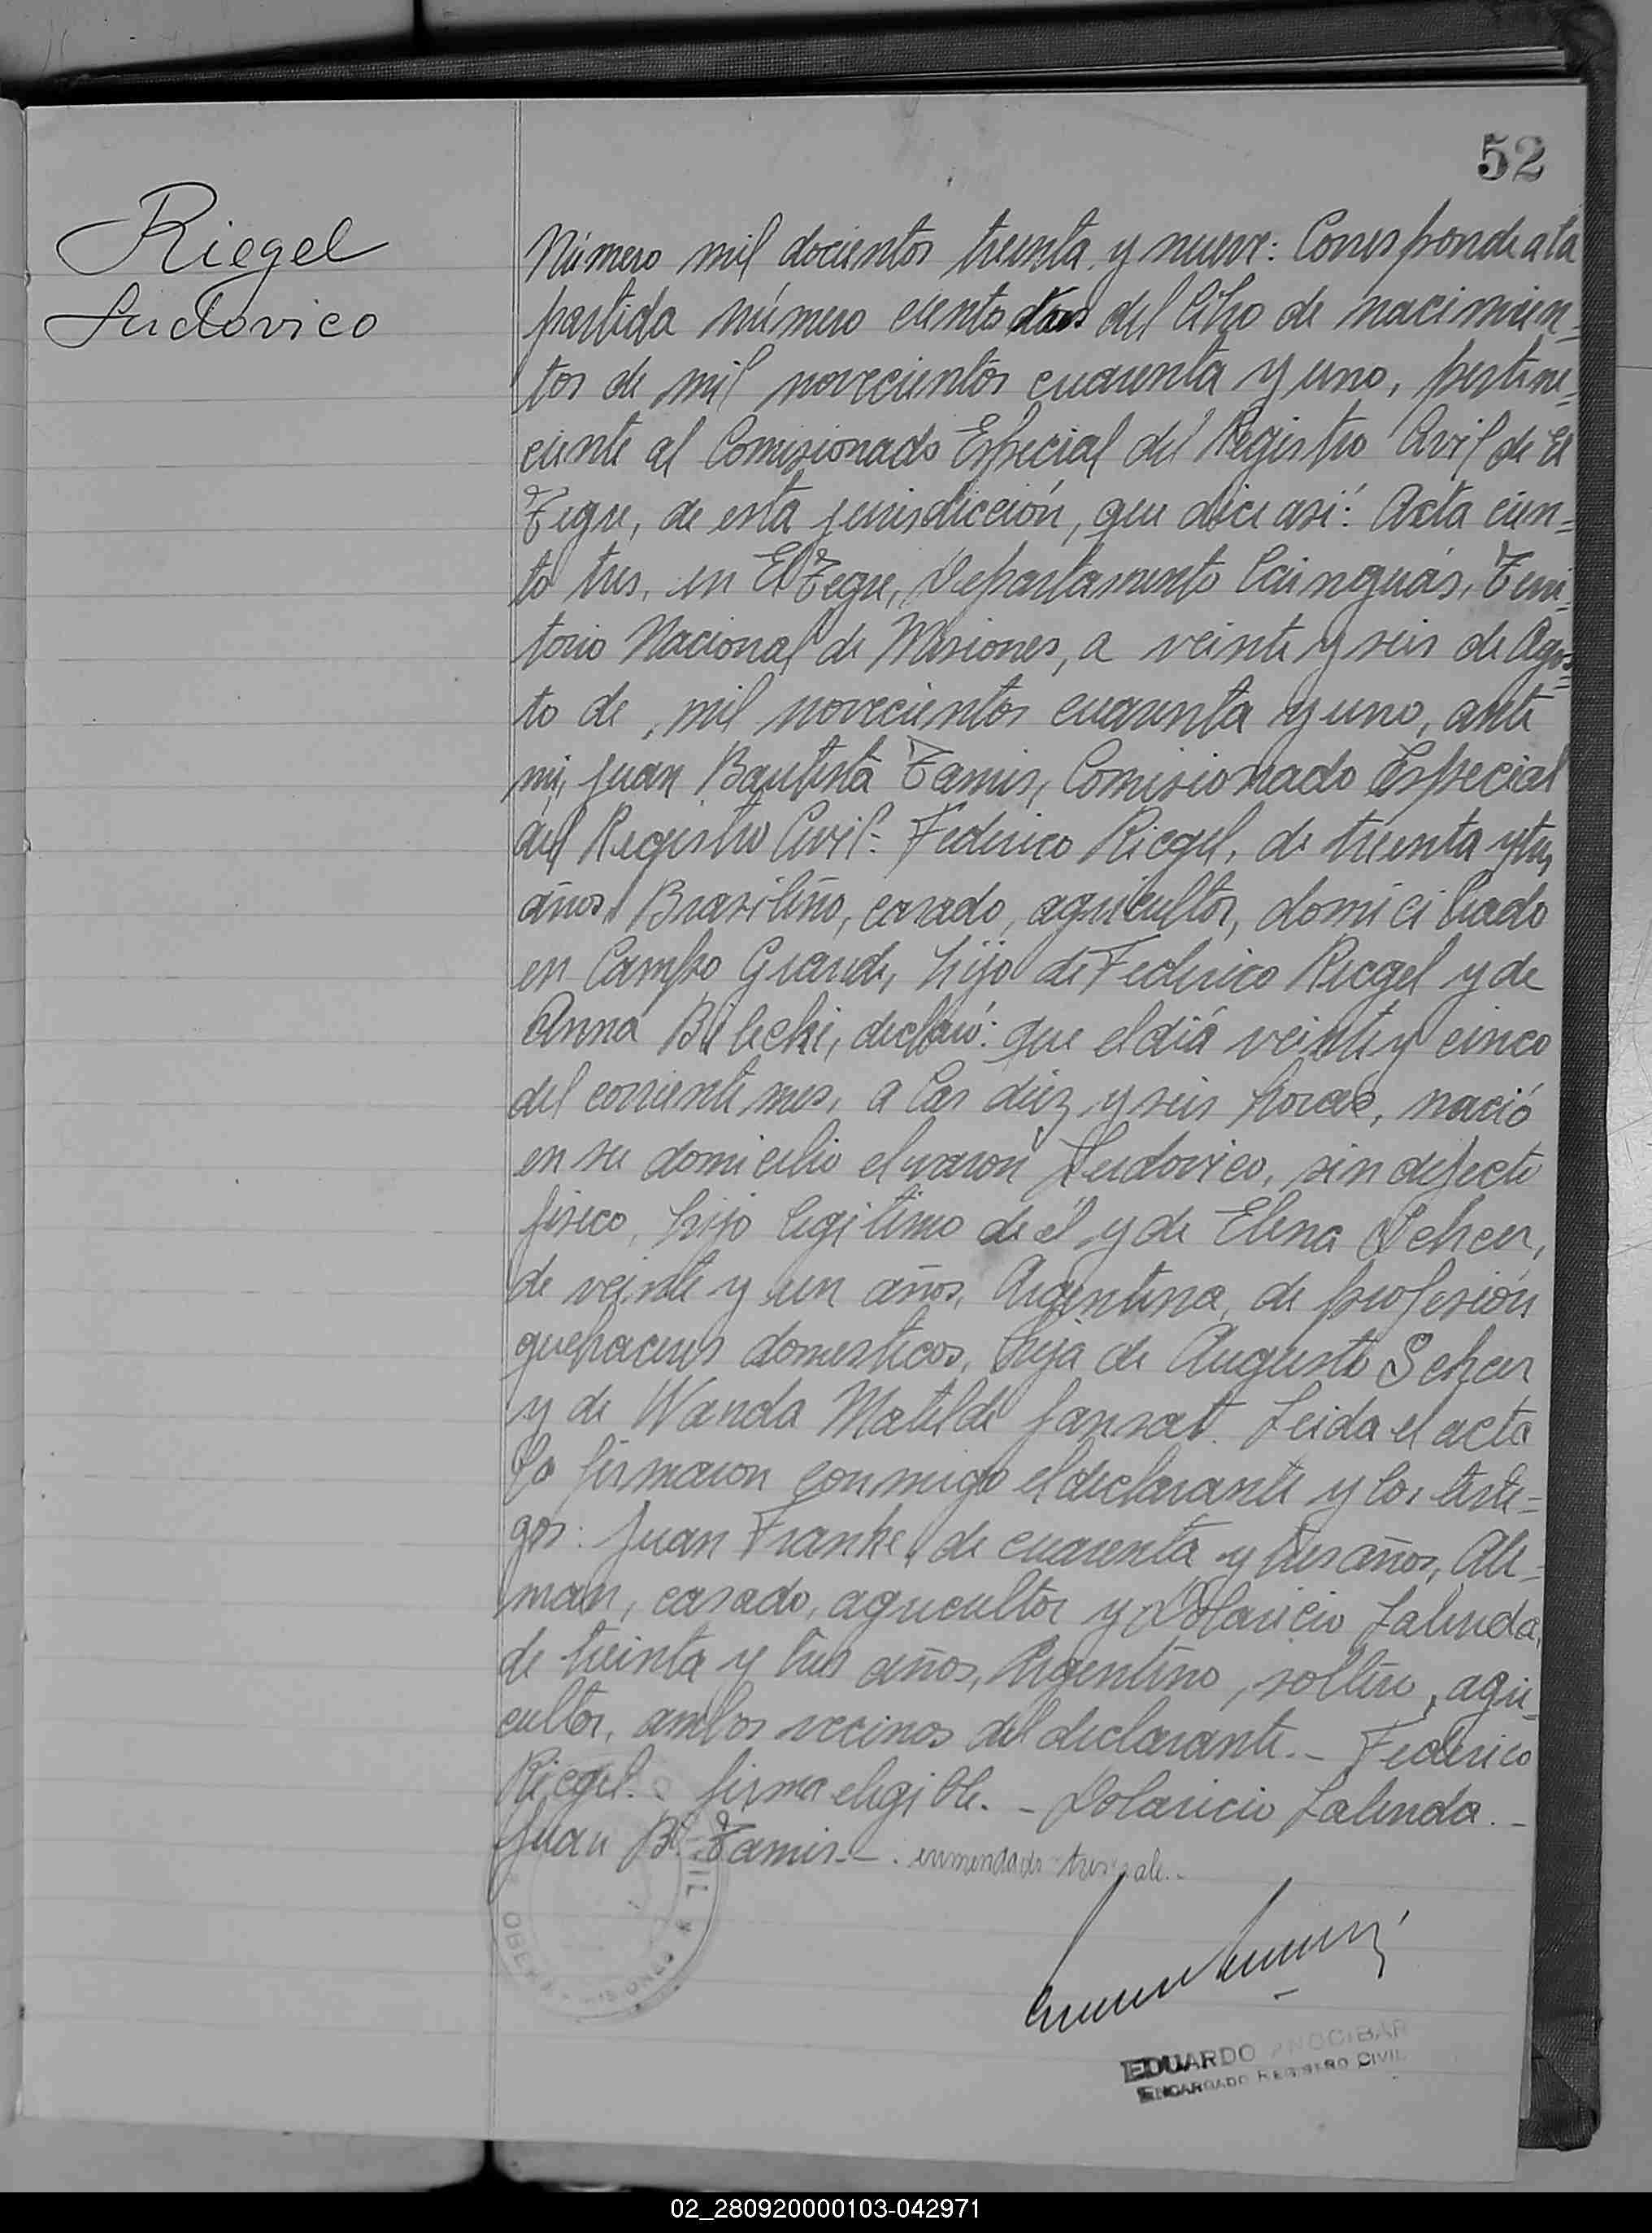 52
Riegel
Ludovico
Número mil docientos treinta y nueve: Corresponde a la
partida número ciento tres del libro de nacimien=
tos de mil novecientos cuarenta y uno, pertene=
ciente al Comisionado Especial del Registro Civil de El
Tegre, de esta jurisdicción, que dice así: Acta cien=
to tres, en El Tegre, Departamento Cainguás, Terri=
torio Nacional de Misiones, a veinte y seis de Agos=
to de mil novecientos cuarenta y uno, ante
mi, Juan Bautista Tamis, Comisionado Especial
del Registro Civil: Federico Riegel, de treinta y tres
años, Brasileño, casado, agricultor, domiciliado
en Campo Grande, hijo de Federico Riegel y de
Anna Bilecki, declaró: que el día veinte y cinco
del corriente mes, a las diez y seis horas, nació
en su domicilio el varon Ludovico, sin defecto
fisico, hijo legitimo de él y de Elena Scher,
de veinte y un años, Argentina, de profesión
quehaceres domesticos, hija de Augusto Scher
y de Wanda Matilde Jansat. Leida el acta
la firmaron conmigo el declarante y los testi=
gos: Juan Franke, de cuarenta y tres años, Ale=
man, casado, agricultor y Dolaricio Zalenda,
de treinta y tres años, Argentino, soltero, agri=
cultor, ambos vecinos del declarante.- Federico
Riegel. firma elegible. - Dolaricio Zalenda.-
Juan Bt. Tamis.-. enmendado tres vale.-
OBERA - MISIONES
EDUARDO ANOCIBAR
ENCARGADO REGISTRO CIVIL
02_280920000103-042971